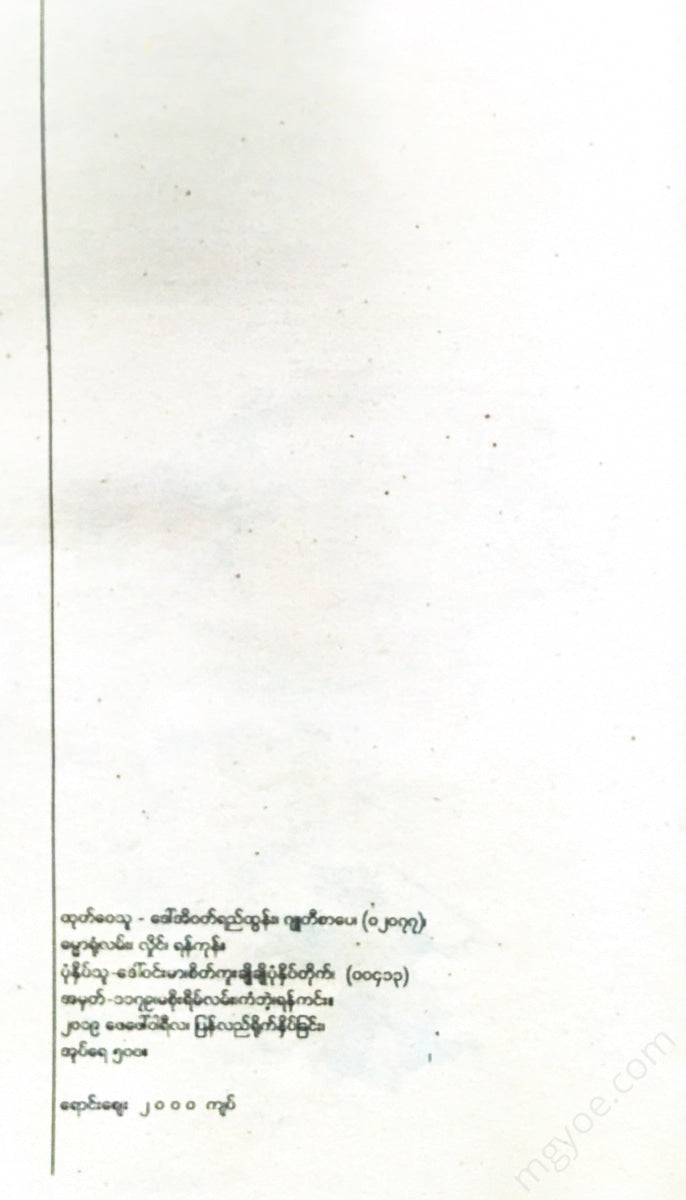 ထုတ်ဝေသူ - ဒေါ်အိဝတ်ရည်ထွန်း၊ ဂျူတီစာပေ၊ (၀၂၀၇၇)၊
ဓမ္မာရုံလမ်း၊ လှိုင်၊ ရန်ကုန်။
ပုံနှိပ်သူ-ဒေါ်ဝင်းမာ၊စိတ်ကူးချိုချိုပုံနှိပ်တိုက်၊ (၀၀၄၁၃)
အမှတ်-၁၁၇၉၊မစိုးရိမ်လမ်း၊ကံဘဲ့၊ရန်ကင်း။
၂၀၁၉ ဖေဖော်ဝါရီလ၊ ပြန်လည်ရိုက်နှိပ်ခြင်း၊
အုပ်ရေ ၅၀၀။
ရောင်းဈေး ၂ ၀ ၀ ၀ ကျပ်
mgyoe.com